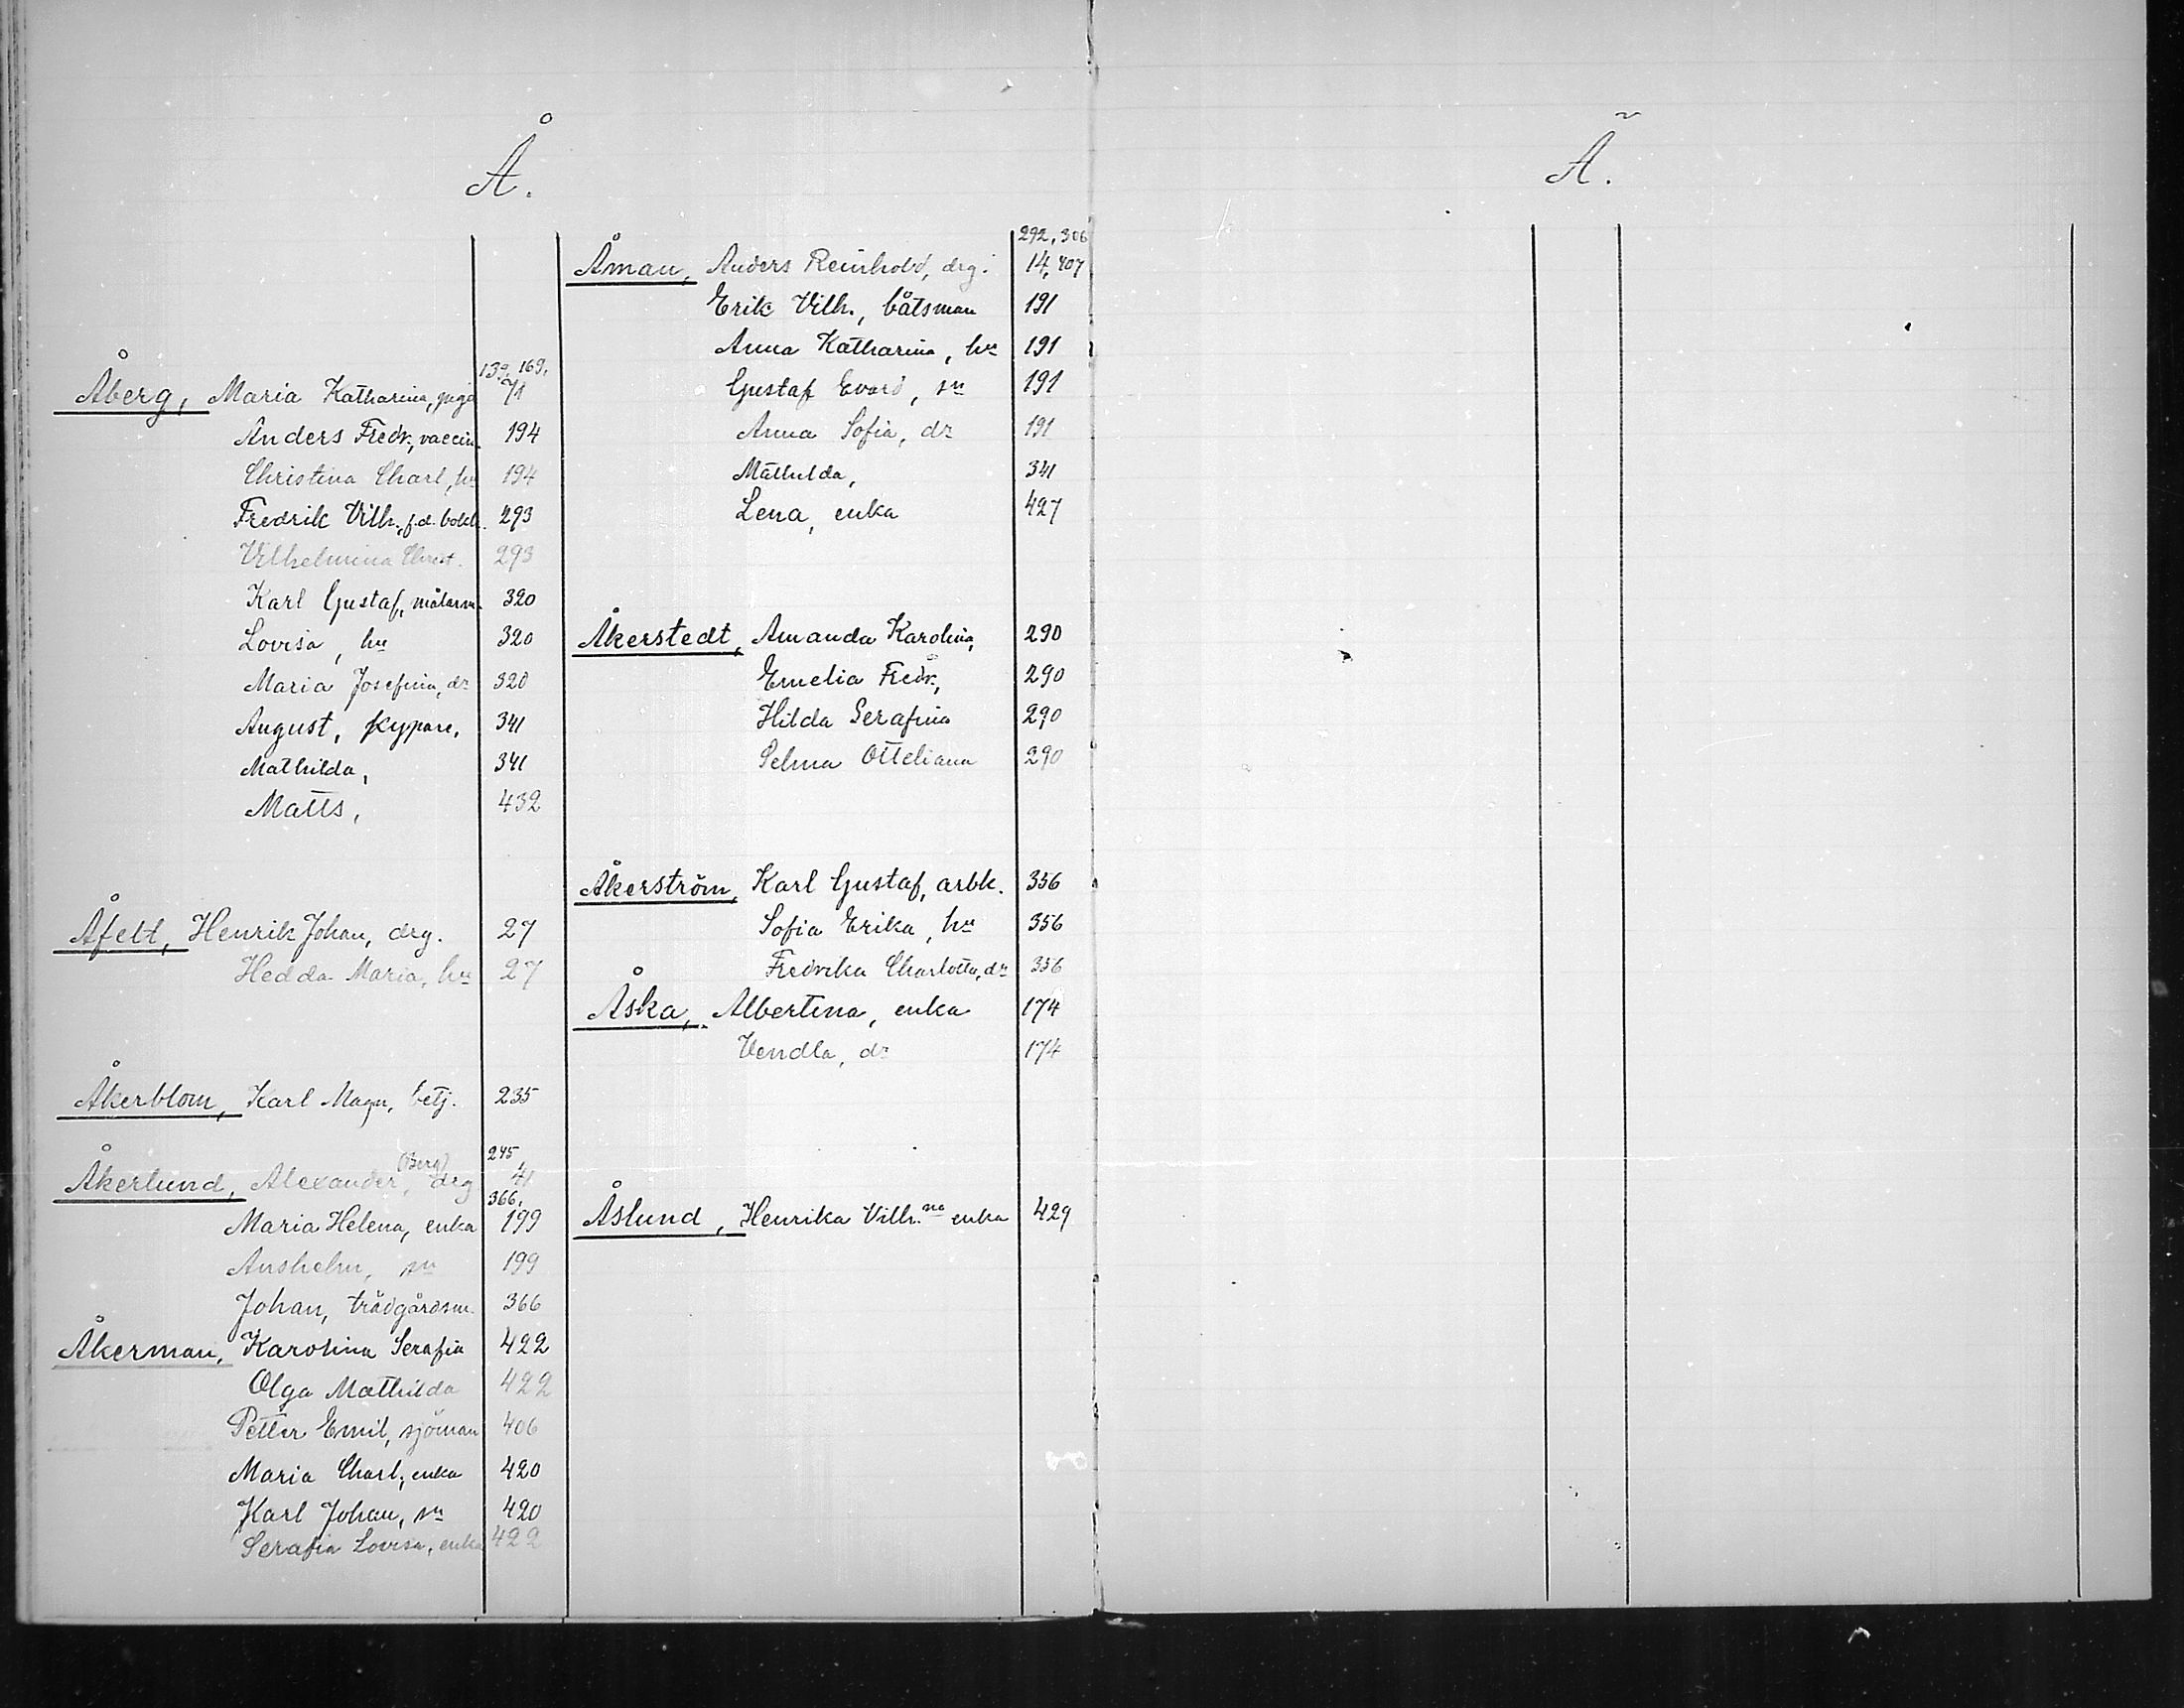 Å.
139, 169,
Åberg, Maria Katharina, piga 71
Anders Fredr., vaccin. 194
Christina Charl, hu 194
Fredrik Vilh. f.d. bokh. 293
Vilhelmina Christ. 293
Karl Gustaf, målarm. 320
Lovisa, hu 320
Maria Josefina, dr 320
August, kypare, 341
Mathilda, 341
Matts, 432
Åfelt, Henrik Johan, drg. 27
Hedda Maria, hu 27
Åkerblom, Karl Magn, betj. 235
(Berg) 245
Åkerlund, Alexander, drg 41
366,
Maria Helena, enka 199
Anshelm, sn 199
Johan, trädgårdsm. 366
Åkerman, Karolina Serafia 422
Olga Mathilda 422
Petter Emil, sjöman 406
Maria Charl, enka 420
Karl Johan, sn 420
Serafia Lovisa, enka 422
292, 306
Åman, Anders Reinhold, drg. 14, 407
Erik Vilh., båtsman 191
Anna Katharina, hu 191
Gustaf Evard, sn 191
Anna Sofia, dr 191
Mathilda, 341
Lena, enka 427
Åkerstedt, Amanda Karolina, 290
Emelia Fredr., 290
Hilda Serafina 290
Selma Otteliana 290
Åkerström, Karl Gustaf, arbk. 356
Sofia Erika, hu 356
Fredrika Charlotta, dr 356
Åska, Albertina, enka 174
Vendla, dr 174
Åslund, Henrika Vilh.na enka 429
Ä.